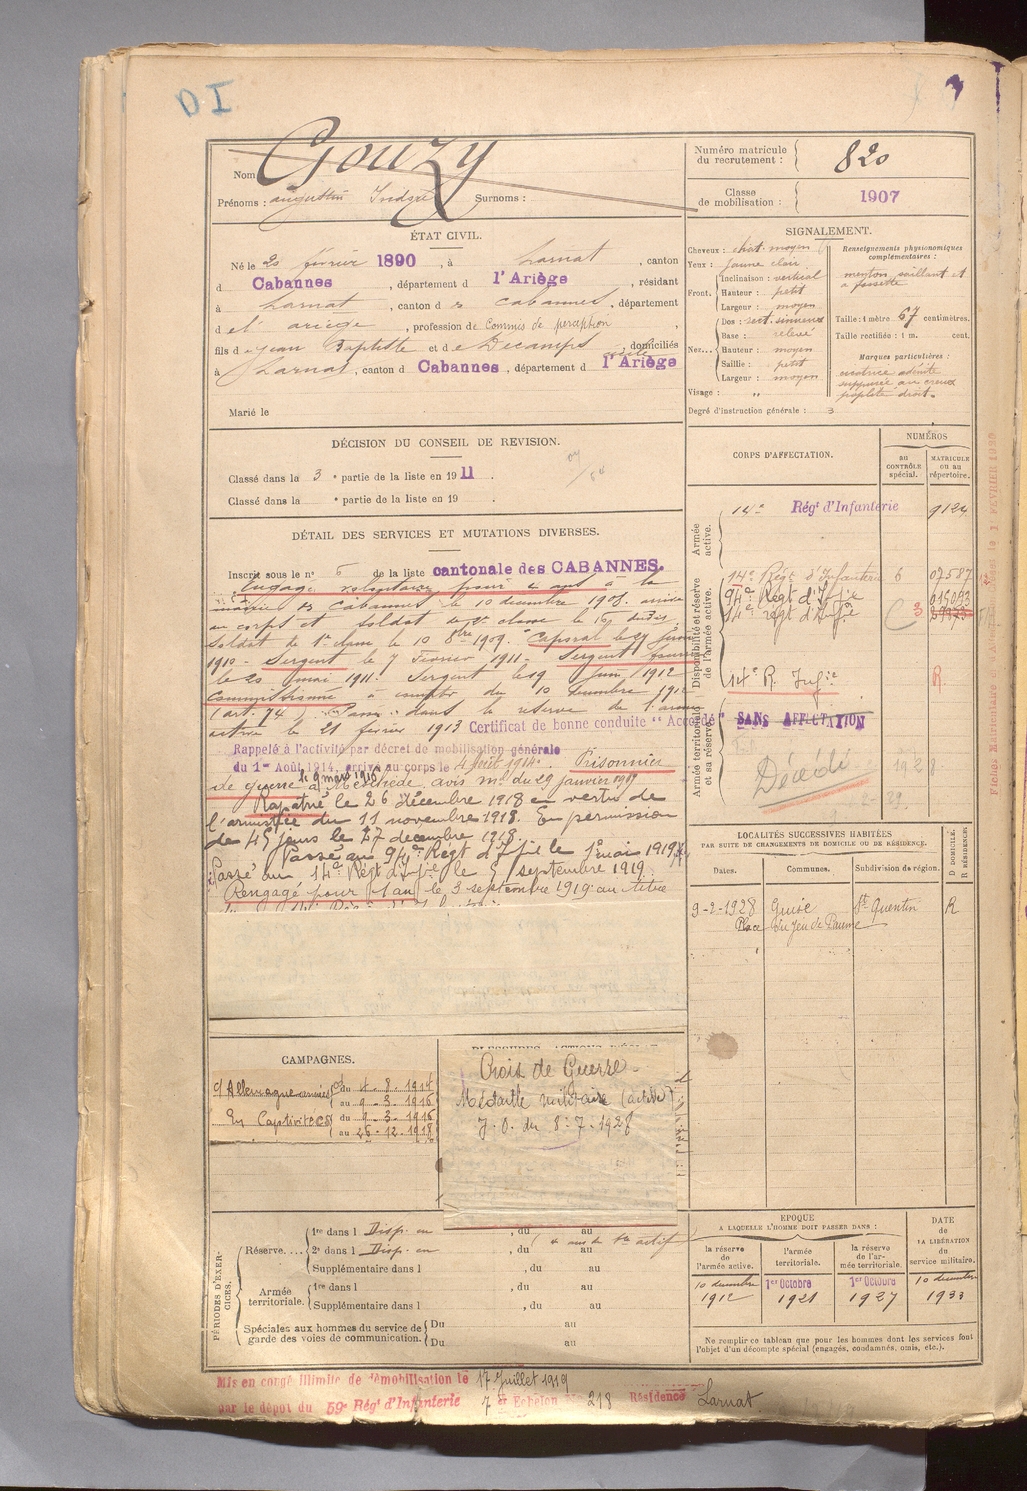 OI
Gouzy
Nom
Prénoms : augustin Surnoms :
Numéro matricule du recrutement : 820
Classe de mobilisation : 1907
ÉTAT CIVIL.
Né le 20 février 1890, à Larnat, canton
d Cabannes, département d l'Ariège, résidant
à Larnat, canton d es cabannes, département
d el' ariège, profession de Commis de perception,
fils d e Jean Baptiste et d e Decamps domiciliés
à Larnat, canton d Cabannes, département d l'Ariège
Marié le
SIGNALEMENT.
Cheveux : chat. moyen
Yeux : jaune clair
Front. Inclinaison : vertical
Hauteur : petit
Largeur : moyen
Nez... Dos : rect. sinueux
Base : relevé
Hauteur : moyen
Saillie : petit
Largeur : moyen
Visage : "
Renseignements physionomiques complémentaires :
menton saillant et
a fossette
Taille : 1 mètre 67 centimètres.
Taille rectifiée : 1 m. cent.
Marques particulières :
cicatrice adénite
suppurée au creux
poplité droit.
Degré d'instruction générale : 3
DÉCISION DU CONSEIL DE REVISION.
Classé dans la 3e partie de la liste en 1911.
Classé dans la e partie de la liste en 19 .
DÉTAIL DES SERVICES ET MUTATIONS DIVERSES.
Inscrit sous le n° 5 de la liste cantonale des CABANNES.
Engagé volontaire pour 4 ans à la
mairie des Cabannes le 10 décembre 1908. arrivé
au corps et soldat de 2e classe le 10 du dit.
Soldat de 1e classe le 10 8bre 1909. Caporal le
1910 - Sergent le 7 Février 1911 - Sergent fourrier
le 20 mai 1911. Sergent le 9 juin 1912
Commissionné à compter du 10 décembre 1912
(art. 74). Passé dans la réserve de l'armée
active le 21 février 1913 Certificat de bonne conduite "Accordé"
Rappelé à l'activité par décret de mobilisation générale
du 1er Août 1914, arrivé au corps le 4 août 1914. Prisonnier
le 9 mars 1916
de guerre à Meschede avis ml du 29 janvier 1919
Rapatrié le 26 décembre 1918 en vertu de
l'armistice du 11 novembre 1918. En permission
de 45 jours le 27 décembre 1918.
Passé au 94e Régt d'Iffie le 1e mai 1919
Passé au 14e Régt d'Iffie le 5 septembre 1919.
Rengagé pour 1 an le 3 septembre 1919 au titre
CORPS D'AFFECTATION.
NUMÉROS
au contrôle spécial.
matricule ou au répertoire.
Armée active.
14e Régt d'Infanterie 9124
Disponibilité et réserve de l'armée active.
14e Régt d'Infanterie 6 07587
94e Régt d'Iffie 015093
14e régt d'Iffie 3
14e R. Inf.ie R.
Armée territoriale et sa réserve.
SANS AFFECTATION
Décédé 1928
LOCALITÉS SUCCESSIVES HABITÉES
PAR SUITE DE CHANGEMENTS DE DOMICILE OU DE RÉSIDENCE.
Dates. Communes. Subdivision de région. D. DOMICILE. R. RÉSIDENCE.
9-2-1928 Guise St Quentin R
Place du Jeu de Paume
CAMPAGNES.
c/ Allemagne armées du 4-8-1914
au 9-3-1916
En Captivité du 9-3-1916
au 26-12-1918
Croix de Guerre -
Médaille militaire (active)
J.O. du 8-7-1928
PÉRIODES D'EXERCICES.
Réserve....
1re dans l Disp. en , du au
2e dans l Disp. en , du au
Supplémentaire dans l , du au
Armée territoriale.
1re dans l , du au
Supplémentaire dans l , du au
Spéciales aux hommes du service de garde des voies de communication.
Du au
Du au
EPOQUE
A LAQUELLE L'HOMME DOIT PASSER DANS :
la réserve de l'armée active. l'armée territoriale. la réserve de l'armée territoriale.
DATE de LA LIBÉRATION du service militaire.
10 décembre 1912 1er Octobre 1921 1er Octobre 1927 10 décembre 1933
Ne remplir ce tableau que pour les hommes dont les services font
l'objet d'un décompte spécial (engagés, condamnés, omis, etc.).
Mis en congé illimité de démobilisation le 17 Juillet 1919
par le dépôt du 59e Régt d'Infanterie 7e Echelon N° 218 Résidence Larnat